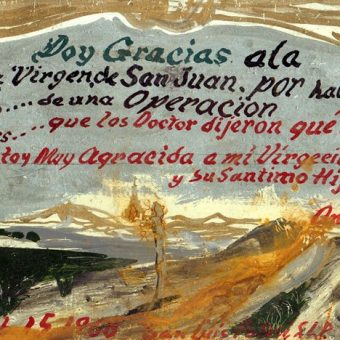 Doy Gracias ala
Virgen,de San Juan. por hal
....de una Operacion
....que los Doctor dijeron qué
toy Muy Agracida a mi Virgeci
y su Santimo Hij
15
San Luis